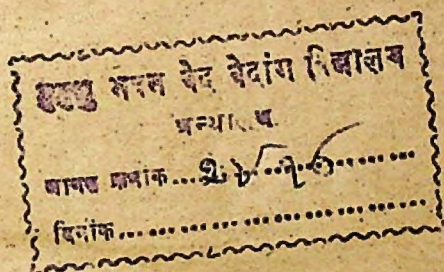 मुमुक्षु भवन वेद वेदांग विद्यालय
ग्रन्थालय
आगत क्रमांक...............
दिनांक...............